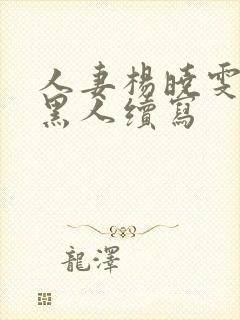 人妻楊曉雯
黑人續寫
龍澤